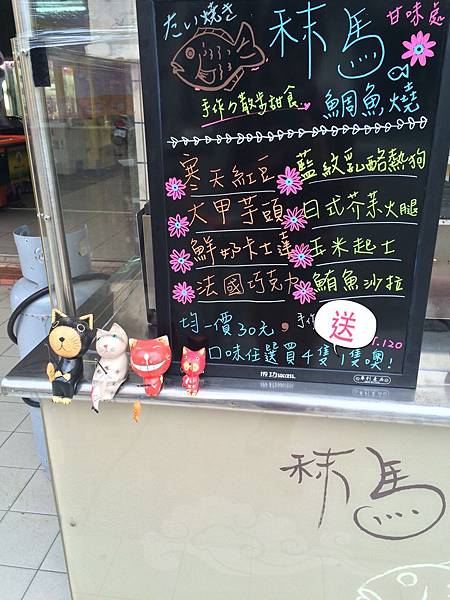 たい焼き
秣馬
甘味處
手作の散步甜食
鯛魚燒
寒天紅豆
藍紋乳酪熱狗
大甲芋頭
日式芥茉火腿
鮮奶卡士達
玉米起士
法國巧克力
鮪魚沙拉
均一價30元,手作
送
.120
口味任選買4隻 1隻噢!
成功 success
秣馬